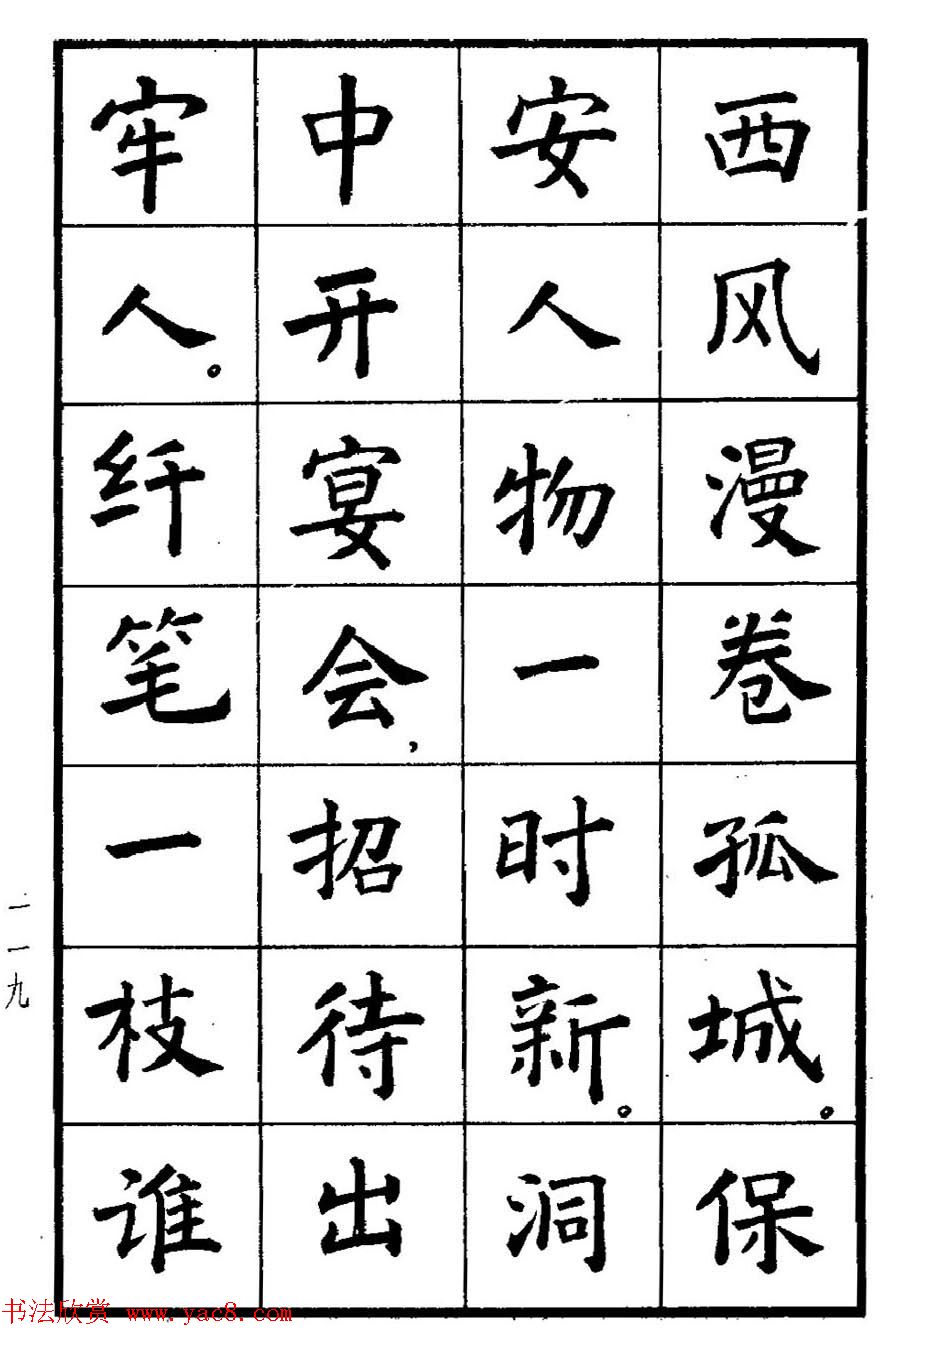 西风漫卷孤城。保
安人物一时新。洞
中开宴会，招待出
牢人。纤笔一枝谁
一一九
书法欣赏 www.yac8.com